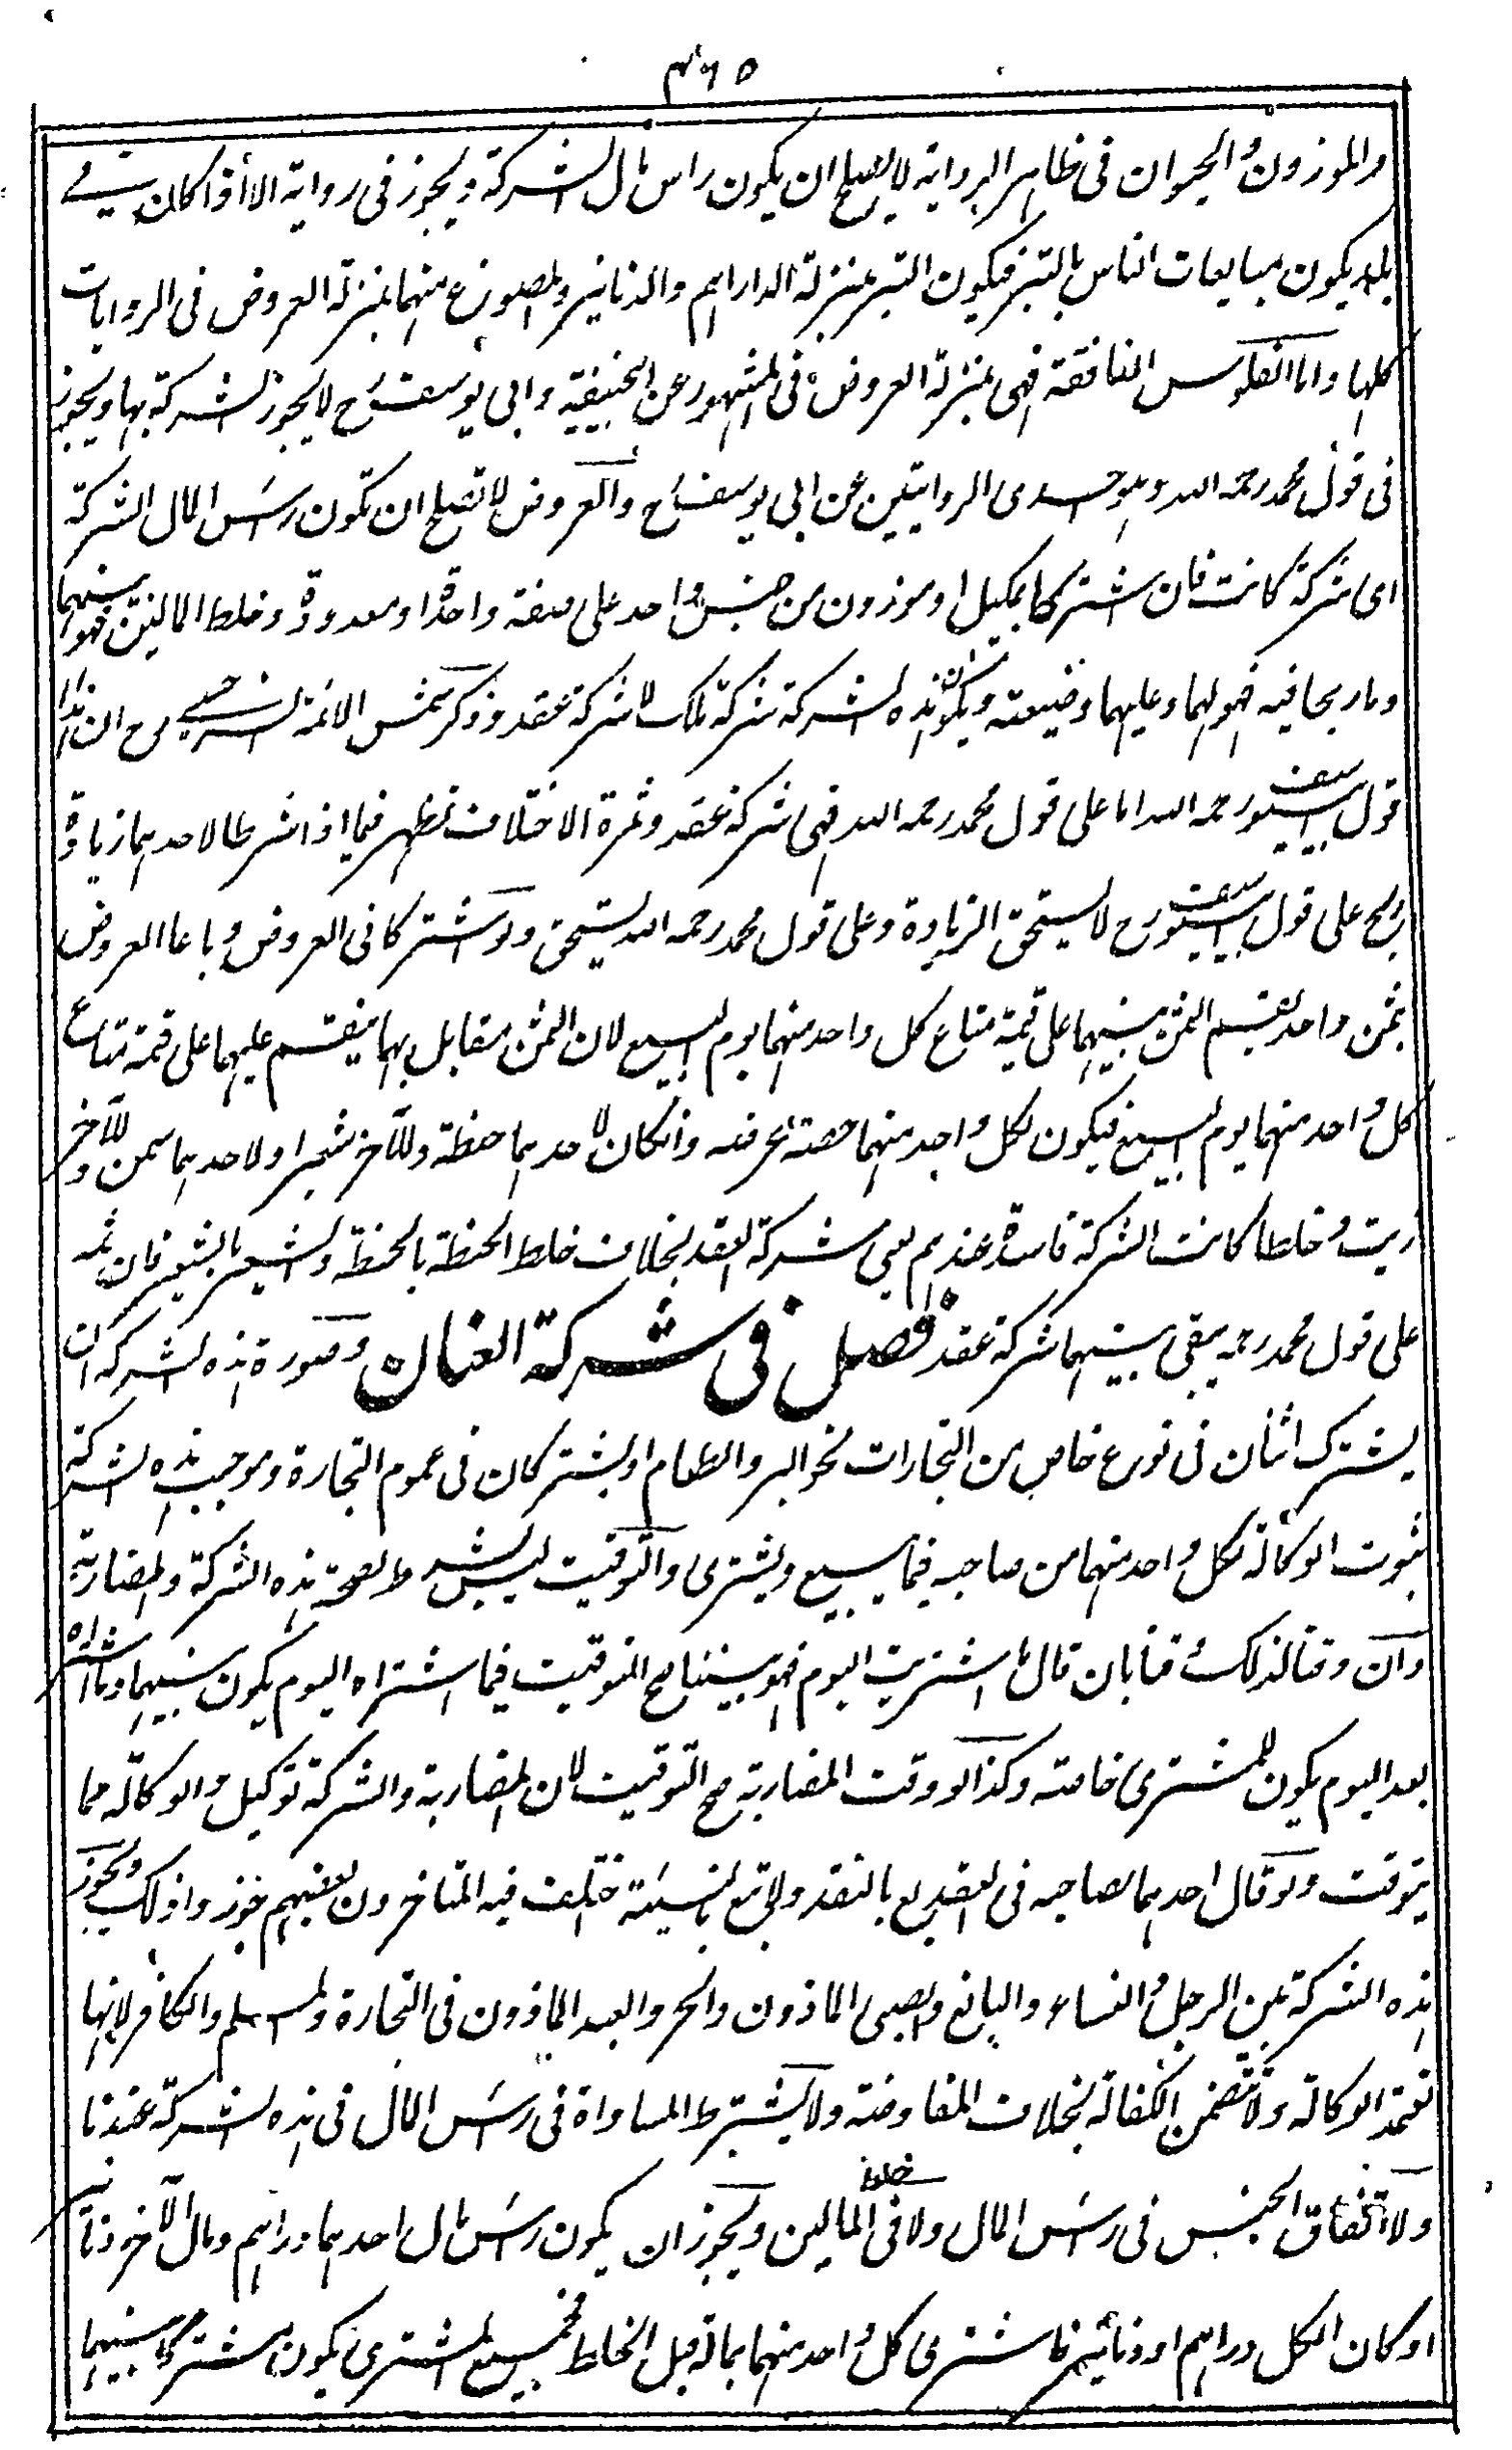 ٤٦٥
والموزون والحيوان فى ظاهر الرواية لا يصلح ان يكون راس مال الشركة ويجوز فى رواية الا اذا كان فى
بلد يكون مبايعات الناس بالتبر فيكون التبر بمنزلة الدراهم والدنانير والمصوغ منهما بمنزلة العروض فى الروايات
كلها واما الفلوس النافقة فهى بمنزلة العروض فى المشهور عن ابيحنيفة وابى يوسف رح لا يجوز الشركة بها ويجوز
فى قول محمد رحمه الله وهو احدى الروايتين عن ابى يوسف رح والعروض لا تصلح ان تكون رأس المال الشركة
اى شركة كانت فان اشتركا بمكيل او موزون من جنس واحد على صفة واحدة او معدودة وخلط المالين فهو بينهما
وما ربحا فيه فهو لهما وعليهما وضيعته ويكون هذه الشركة شركة ملك لا شركة عقد وذكر شمس الائمة السرخسى رح ان هذا
قول ابيوسف رحمه الله اما على قول محمد رحمه الله فهى شركة عقد وثمرة الاختلاف تظهر فيما اذا شرطا لاحدهما زيادة
ربح على قول ابيوسف رح لا يستحق الزيادة وعلى قول محمد رحمه الله يستحق ولو اشتركا فى العروض وباعا العروض
بثمن واحد يقسم الثمن بينهما على قيمة متاع كل واحد منهما يوم البيع لان الثمن مقابل بهما فيقسم عليهما على قيمة متاع
كل واحد منهما يوم البيع فيكون لكل واحد منهما حصة عرضه وان كان لاحدهما حنطة وللآخر شعير او لاحدهما سمن وللآخر
زيت وخلطا كانت الشركة فاسدة عندهم يعنى شركة العقد بخلاف خلط الحنطة بالحنطة والشعير بالشعير فان ثمه
على قول محمد رحمه يبقى بينهما شركة عقد فصل فى شركة العنان وصورة هذه الشركة ان
يشترك اثنان فى نوع خاص من التجارات نحو البر والطعام او يشتركان فى عموم التجارة وموجب هذه الشركة
ثبوت الوكالة لكل واحد منهما من صاحبه فيما يبيع ويشترى والتوقيت ليس بشرط لصحة هذه الشركة والمضاربة
وان وقتا لذلك وقتا بان قال ما اشتريت اليوم فهو بيننا صح التوقيت فيما اشتراه اليوم يكون بينهما وما اشتراه
بعد اليوم يكون للمشترى خاصته وكذا لو وقت المضاربة صح التوقيت لان المضاربة والشركة توكيل والوكالة مما
يتوقت ولو قال احدهما لصاحبه فى العقد بع بالنقد ولا تبع بالنسيئة اختلف فيه المتاخرون بعضهم جوزوا ذلك ويجوز
هذه الشركة بين الرجل والنساء والبالغ والصبى الماذون والحر والعبد الماذون فى التجارة والمسلم والكافر لانها
تعتمد الوكالة ولا تتضمن الكفالة بخلاف المفاوضته ولا يشترط المساواة فى رأس المال فى هذه الشركة عندنا
ولا اتفاق الجنس فى رأس المال ولا خلط المالين ويجوز ان يكون رأس مال احدهما دراهم ومال الآخر دنانير
او كان الكل دراهم او دنانير فاشترى كل واحد منهما بماله قبل الخلط فجميع المشترى يكون مشتركا بينهما